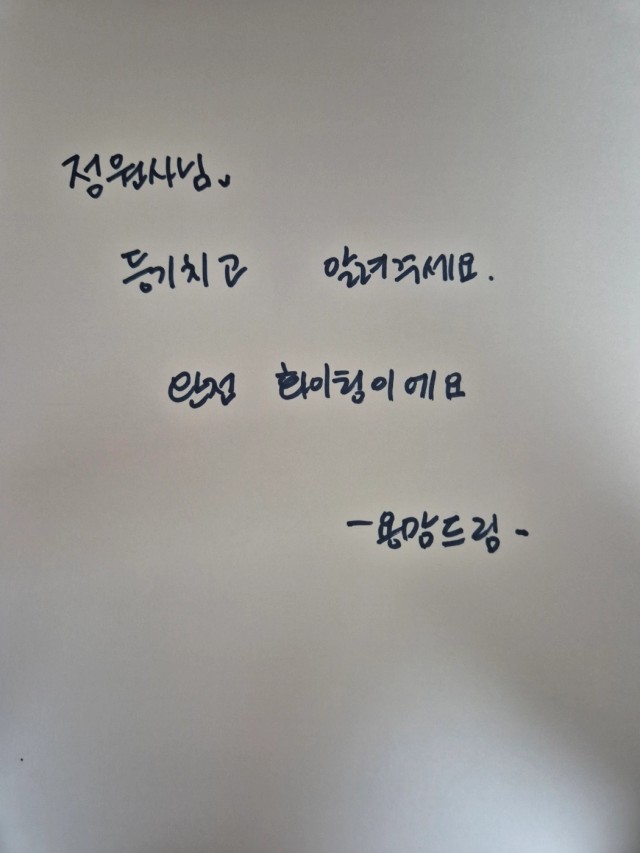 정원사님.
등기치고 알려주세요.
완전 화이팅이에요
-용망드림-